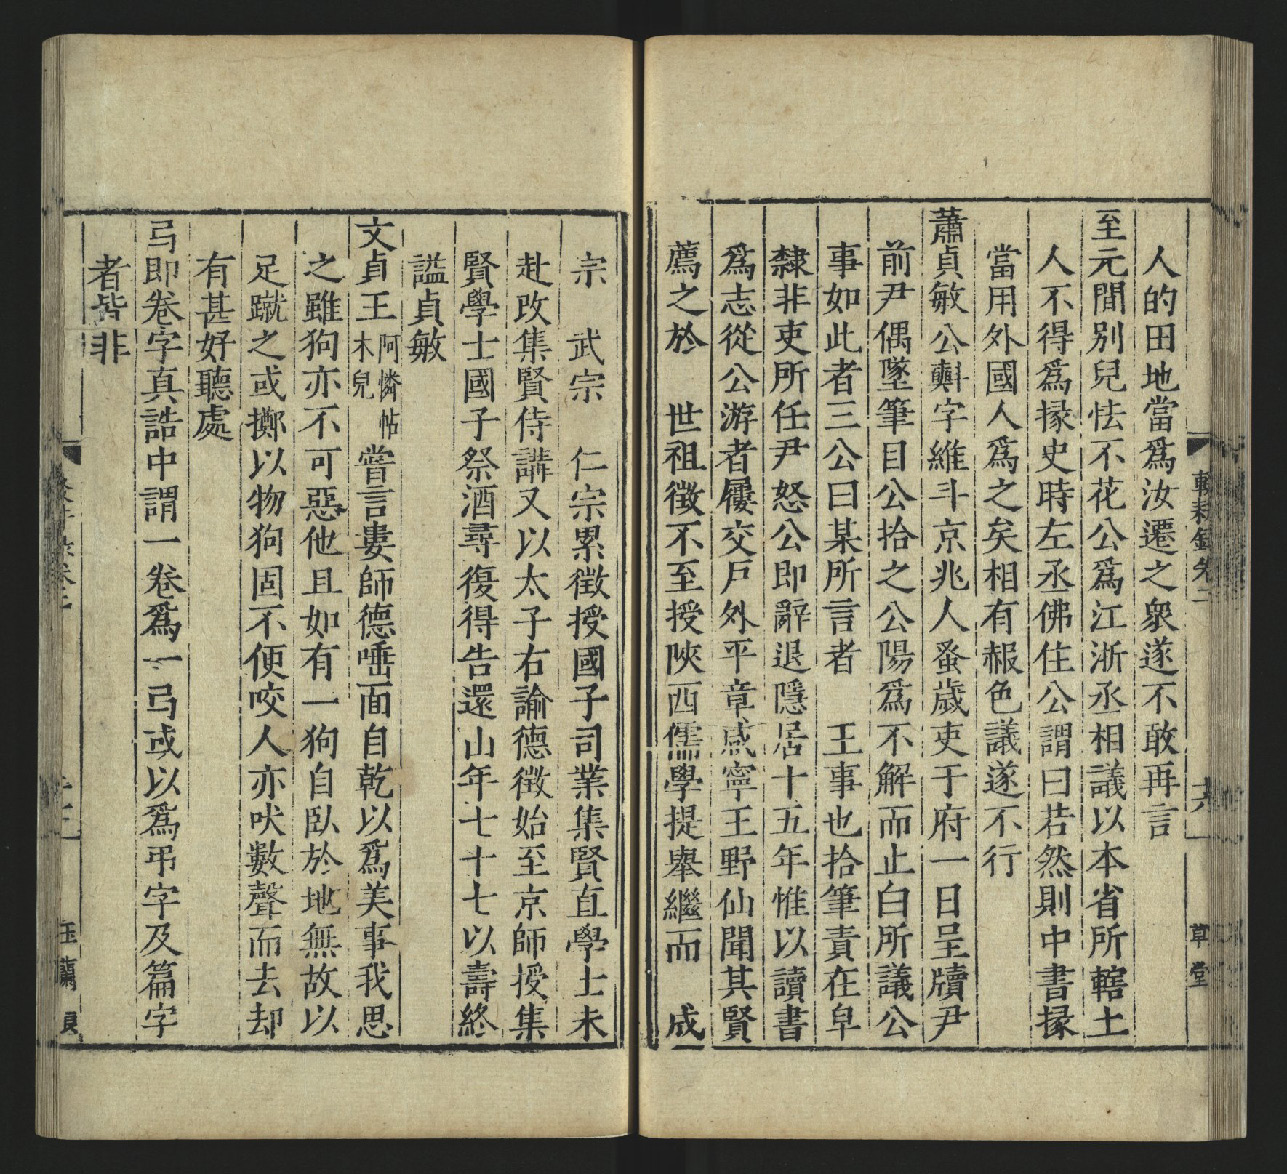 人的田地當爲汝遷之衆遂不敢再言
至元間别兒怯不花公爲江浙丞相議以本省所轄土
人不得爲掾史時左丞佛住公謂曰若然則中書掾
當用外國人爲之矣相有赧色議遂不行
蕭貞敏公㪺字維斗京兆人蚤歲吏于府一日呈牘尹
前尹偶墜筆目公拾之公陽爲不解而止白所議公
事如此者三公曰某所言者 王事也拾筆責在皁
隸非吏所任尹怒公即辭退隱居十五年惟以讀書
爲志從公游者屨交戸外平章咸寧王野仙聞其賢
薦之於 世祖徵不至授陜西儒學提舉繼而 成
輟耕錄卷二
六
草堂
宗 武宗 仁宗累徵授國子司業集賢直學士未
赴改集賢侍講又以太子右諭德徵始至京師授集
賢學士國子祭酒尋復得告還山年七十七以壽終
謚貞敏
文貞王阿憐帖木兒嘗言婁師德唾面自乾以爲美事我思
之雖狗亦不可惡他且如有一狗自臥於地無故以
足蹴之或擲以物狗固不便咬人亦吠數聲而去却
有甚好聽處
弓即卷字真誥中謂一卷爲一弓或以爲弔字及篇字
者皆非
玉蘭